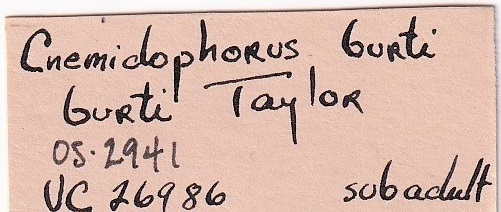 Cnemidophorus burti
burti Taylor
OS·2941
UC 26986 subadult